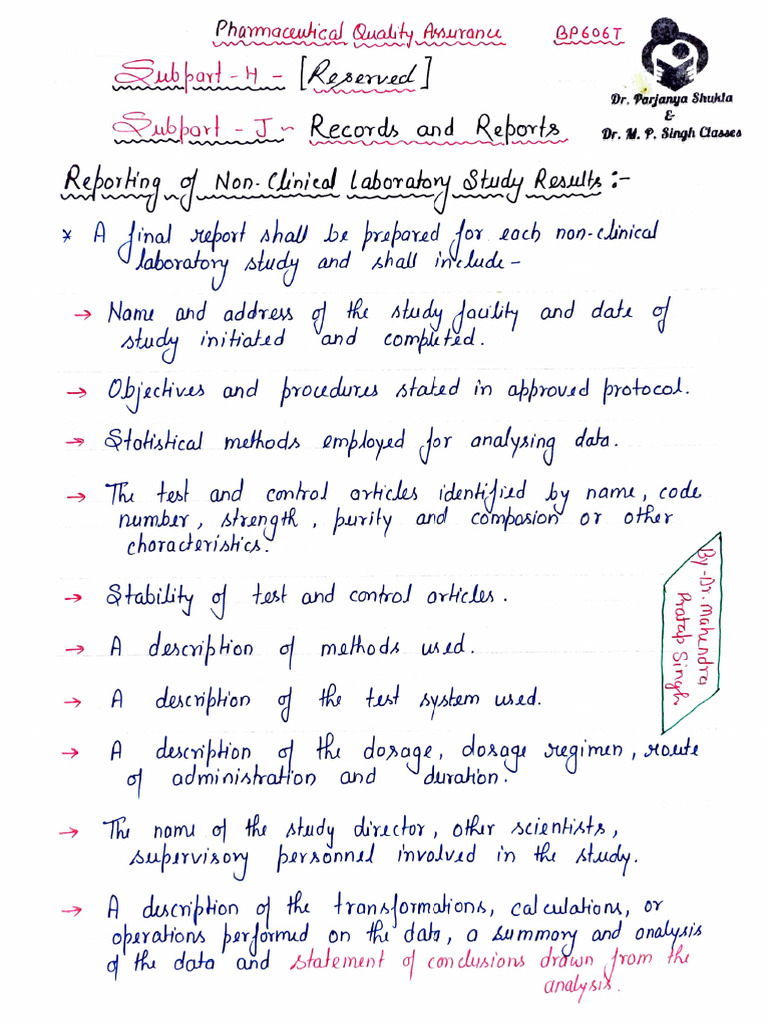 Pharmaceutical Quality Assurance BP606T
Subpart - H - [Reserved]
Dr. Parjanya Shukla
&
Dr. M. P. Singh Classes
Subpart - J - Records and Reports
Reporting of Non-Clinical Laboratory Study Results :-
* A final report shall be prepared for each non-clinical
laboratory study and shall include -
→ Name and address of the study facility and date of
study initiated and completed.
→ Objectives and procedures stated in approved protocol.
→ Statistical methods employed for analysing data.
→ The test and control articles identified by name, code
number, strength, purity and composion or other
characteristics.
By - Dr. Mahendra
Pratap Singh
→ Stability of test and control articles.
→ A description of methods used.
→ A description of the test system used.
→ A description of the dosage, dosage regimen, route
of administration and duration.
→ The name of the study director, other scientists,
supervisory personnel involved in the study.
→ A description of the transformations, calculations, or
operations performed on the data, a summary and analysis
of the data and statement of conclusions drawn from the
analysis.